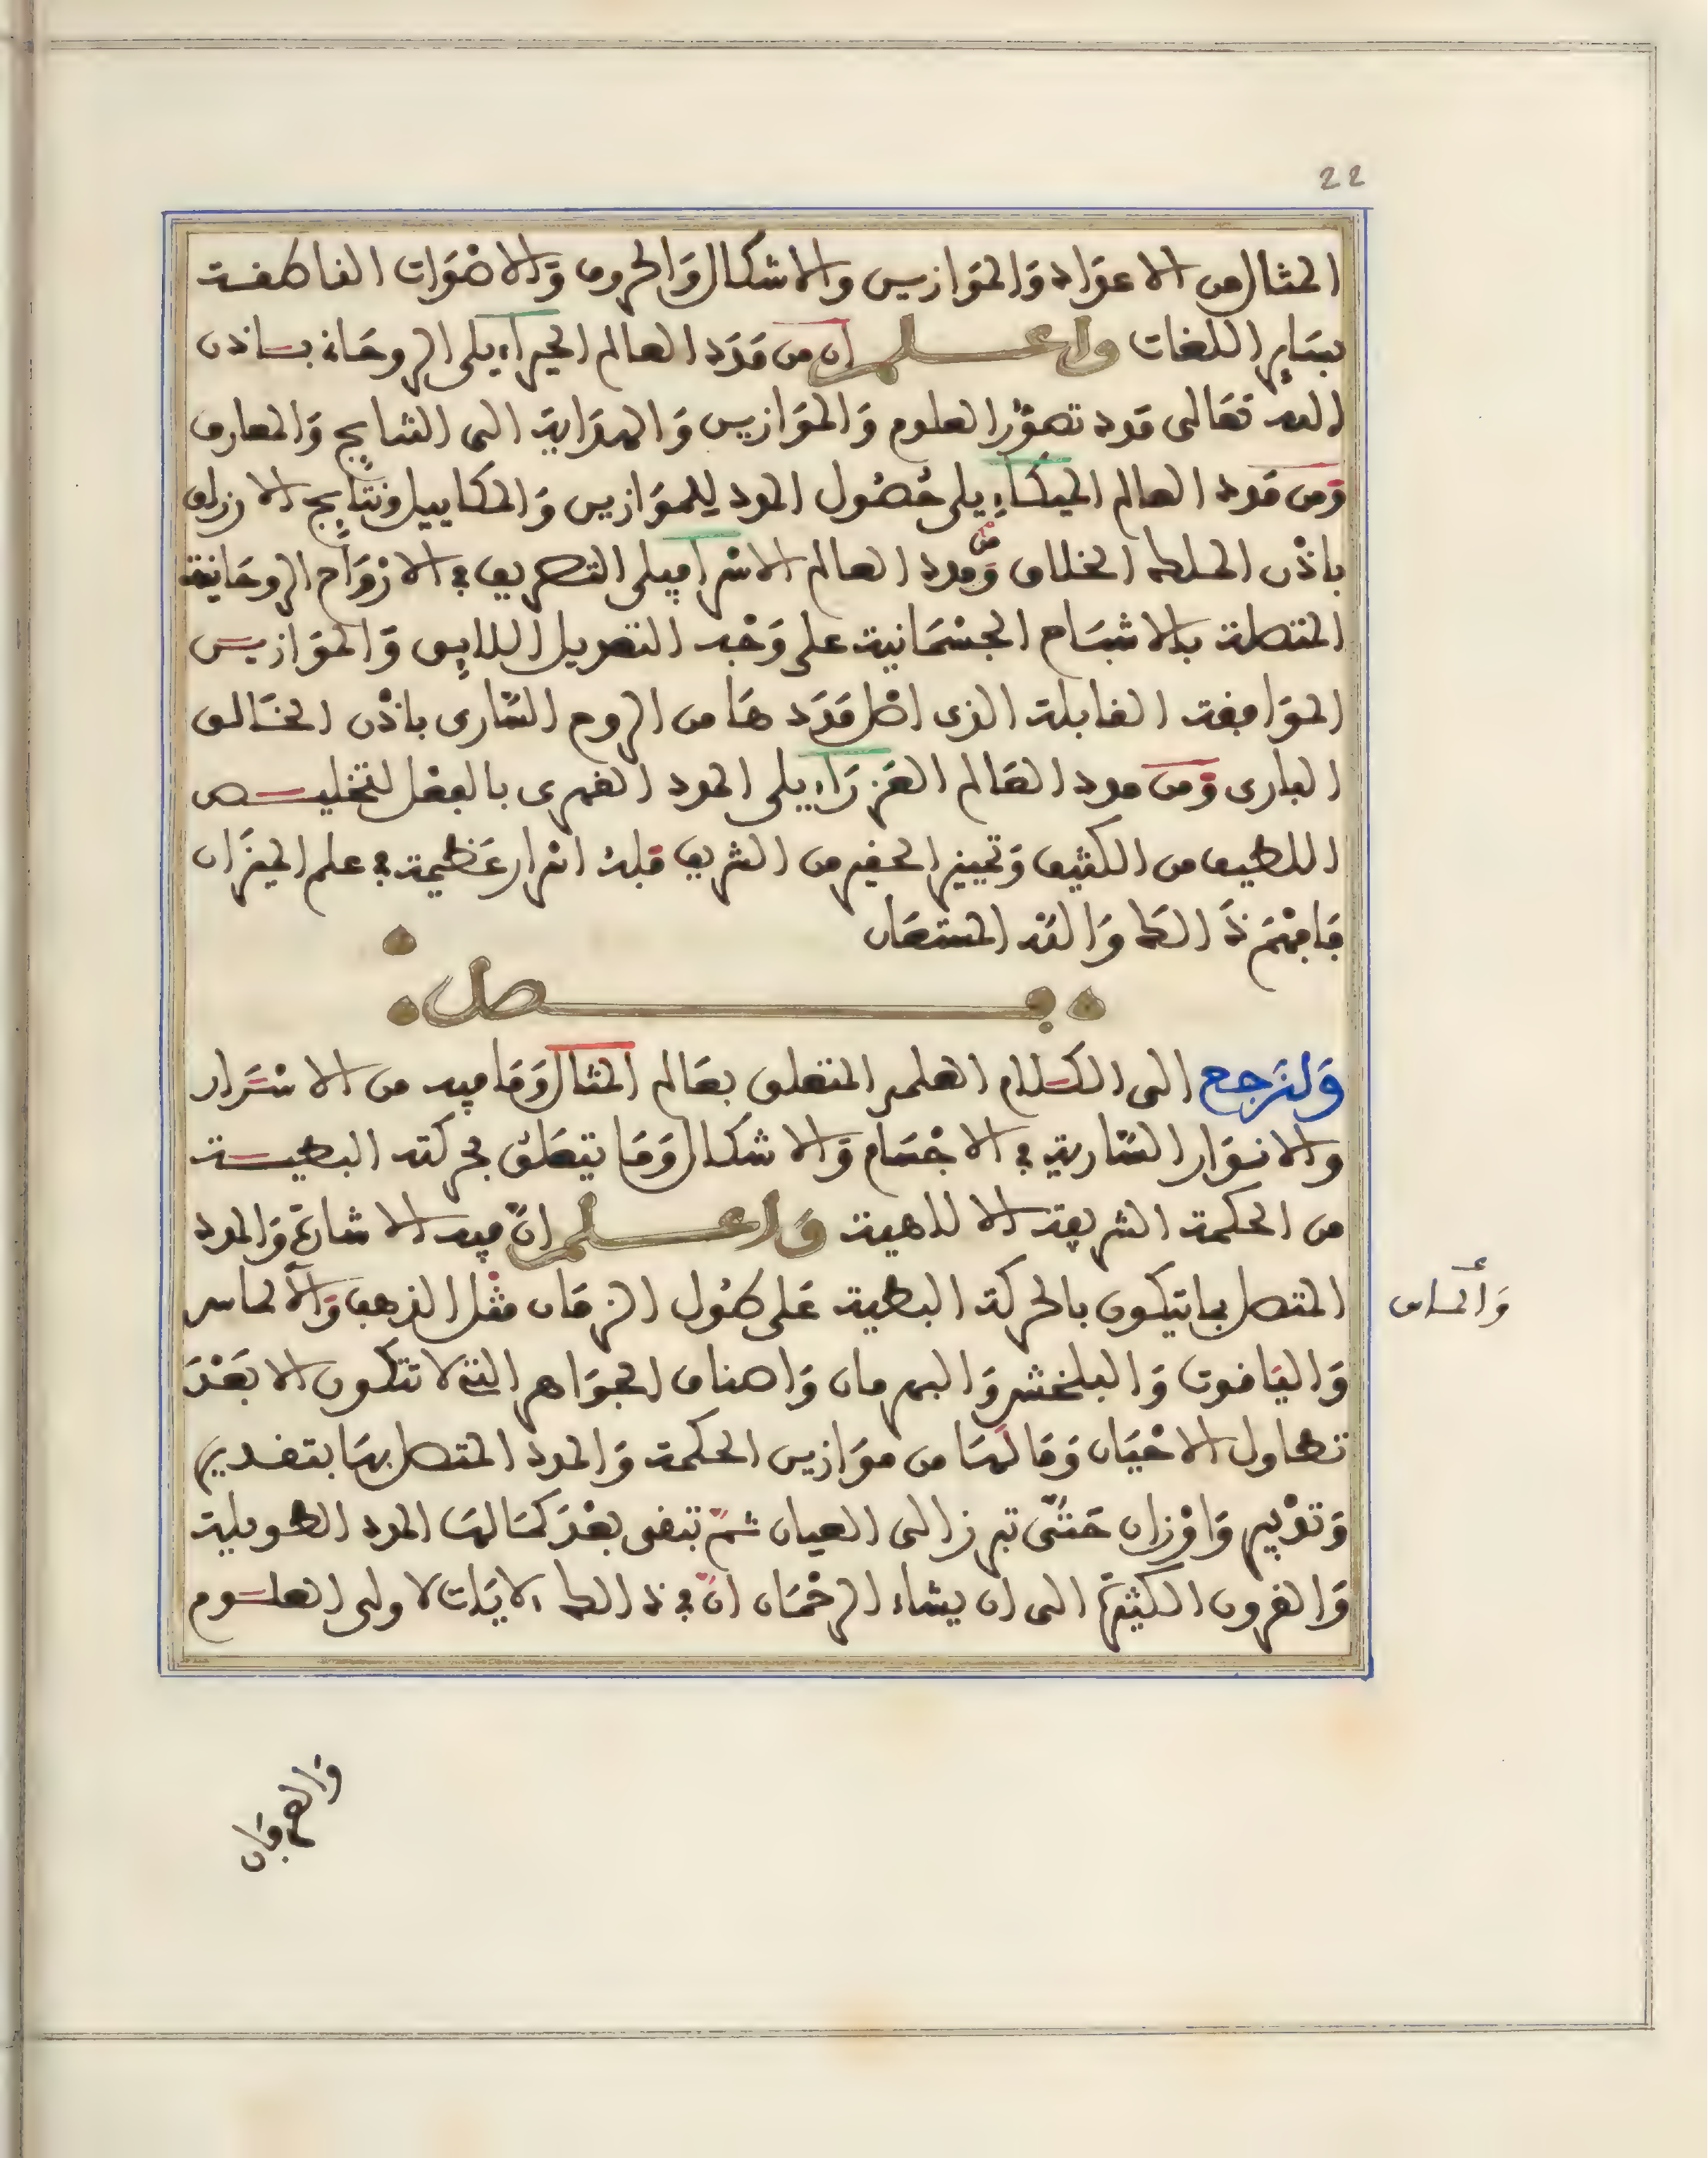 22
المثال من الاعداد وَالموَازين والاشكال وَالحروف وَالاصْوَات الناطقة
بسَاير اللغات واعلم ان من مَدَد العالم الجبراءيلى الروحَانى بــاذن
الله تعَالى مَدد تصوّر العلوم وَالموَازين وَالهدَاية الى النتايج وَالمعارف
وَمن مَدد العالم الميكَاءيلى حُصُول المدد للموَازين وَالمكاييل ونتَايج الارزاق
باذْن الملك الخلاق وَمن مدد العالم الاسْرافيلى التصريف في الارْوَاح الروحَانية
المتصلة بالاشبَاح الجسْمَانية على وَجْه التعديل اللايق وَالموَازيــن
الموَافقة القابلة الذى اصْل مَدَدهَا من الروح السَّارى باذْن الخَالق
البارى وَمن مدد العَالم العَزرَاءيلى المدد القهرى بالفعْل لتخليــص
اللطيف من الكثيف وَتمييز الحقير من الشريف فلهُ اسْرار عَظيمة في علم الميزَان
فَافهَمْ ذَالك وَاللَه المستعَان
فــــصل
وَلنَرجع الى الكــلام العلمى المتعلق بعَالم المثال وَمَا فيه من الاسْــرار
والانوَار السَّارية في الاجْسَام وَالاشكال وَمَا يتعَلق بحركته البطيــة
من الحكمة الشريفة الالاهية وَاعلم انّ فيه الاشارَة وَالمدد
المتصل بما يتكون بالحركة البطية عَلى طُول الزمَان مثْل الذهب وَالألماس
وَألماس
وَاليَاقوت وَالبلخش وَالبهرمان وَاصناف الجوَاهر التى لا تتكون الا بَعْدَ
تطاول الاحْيَان وَمَا لهَا من موَازين الحكمة وَالمدد المتصل بهَا بتقدير
وَتدْبير وَاوْزان حَتَّى تبرز الى العيان ثمّ تبقى بعْدَ كمَالهَا المدد الطويلة
وَالقرون الكثيرَة الى ان يشاء الرحْمَان انّ في ذالك لايَات لاولى العلــوم
وَالعرفَان